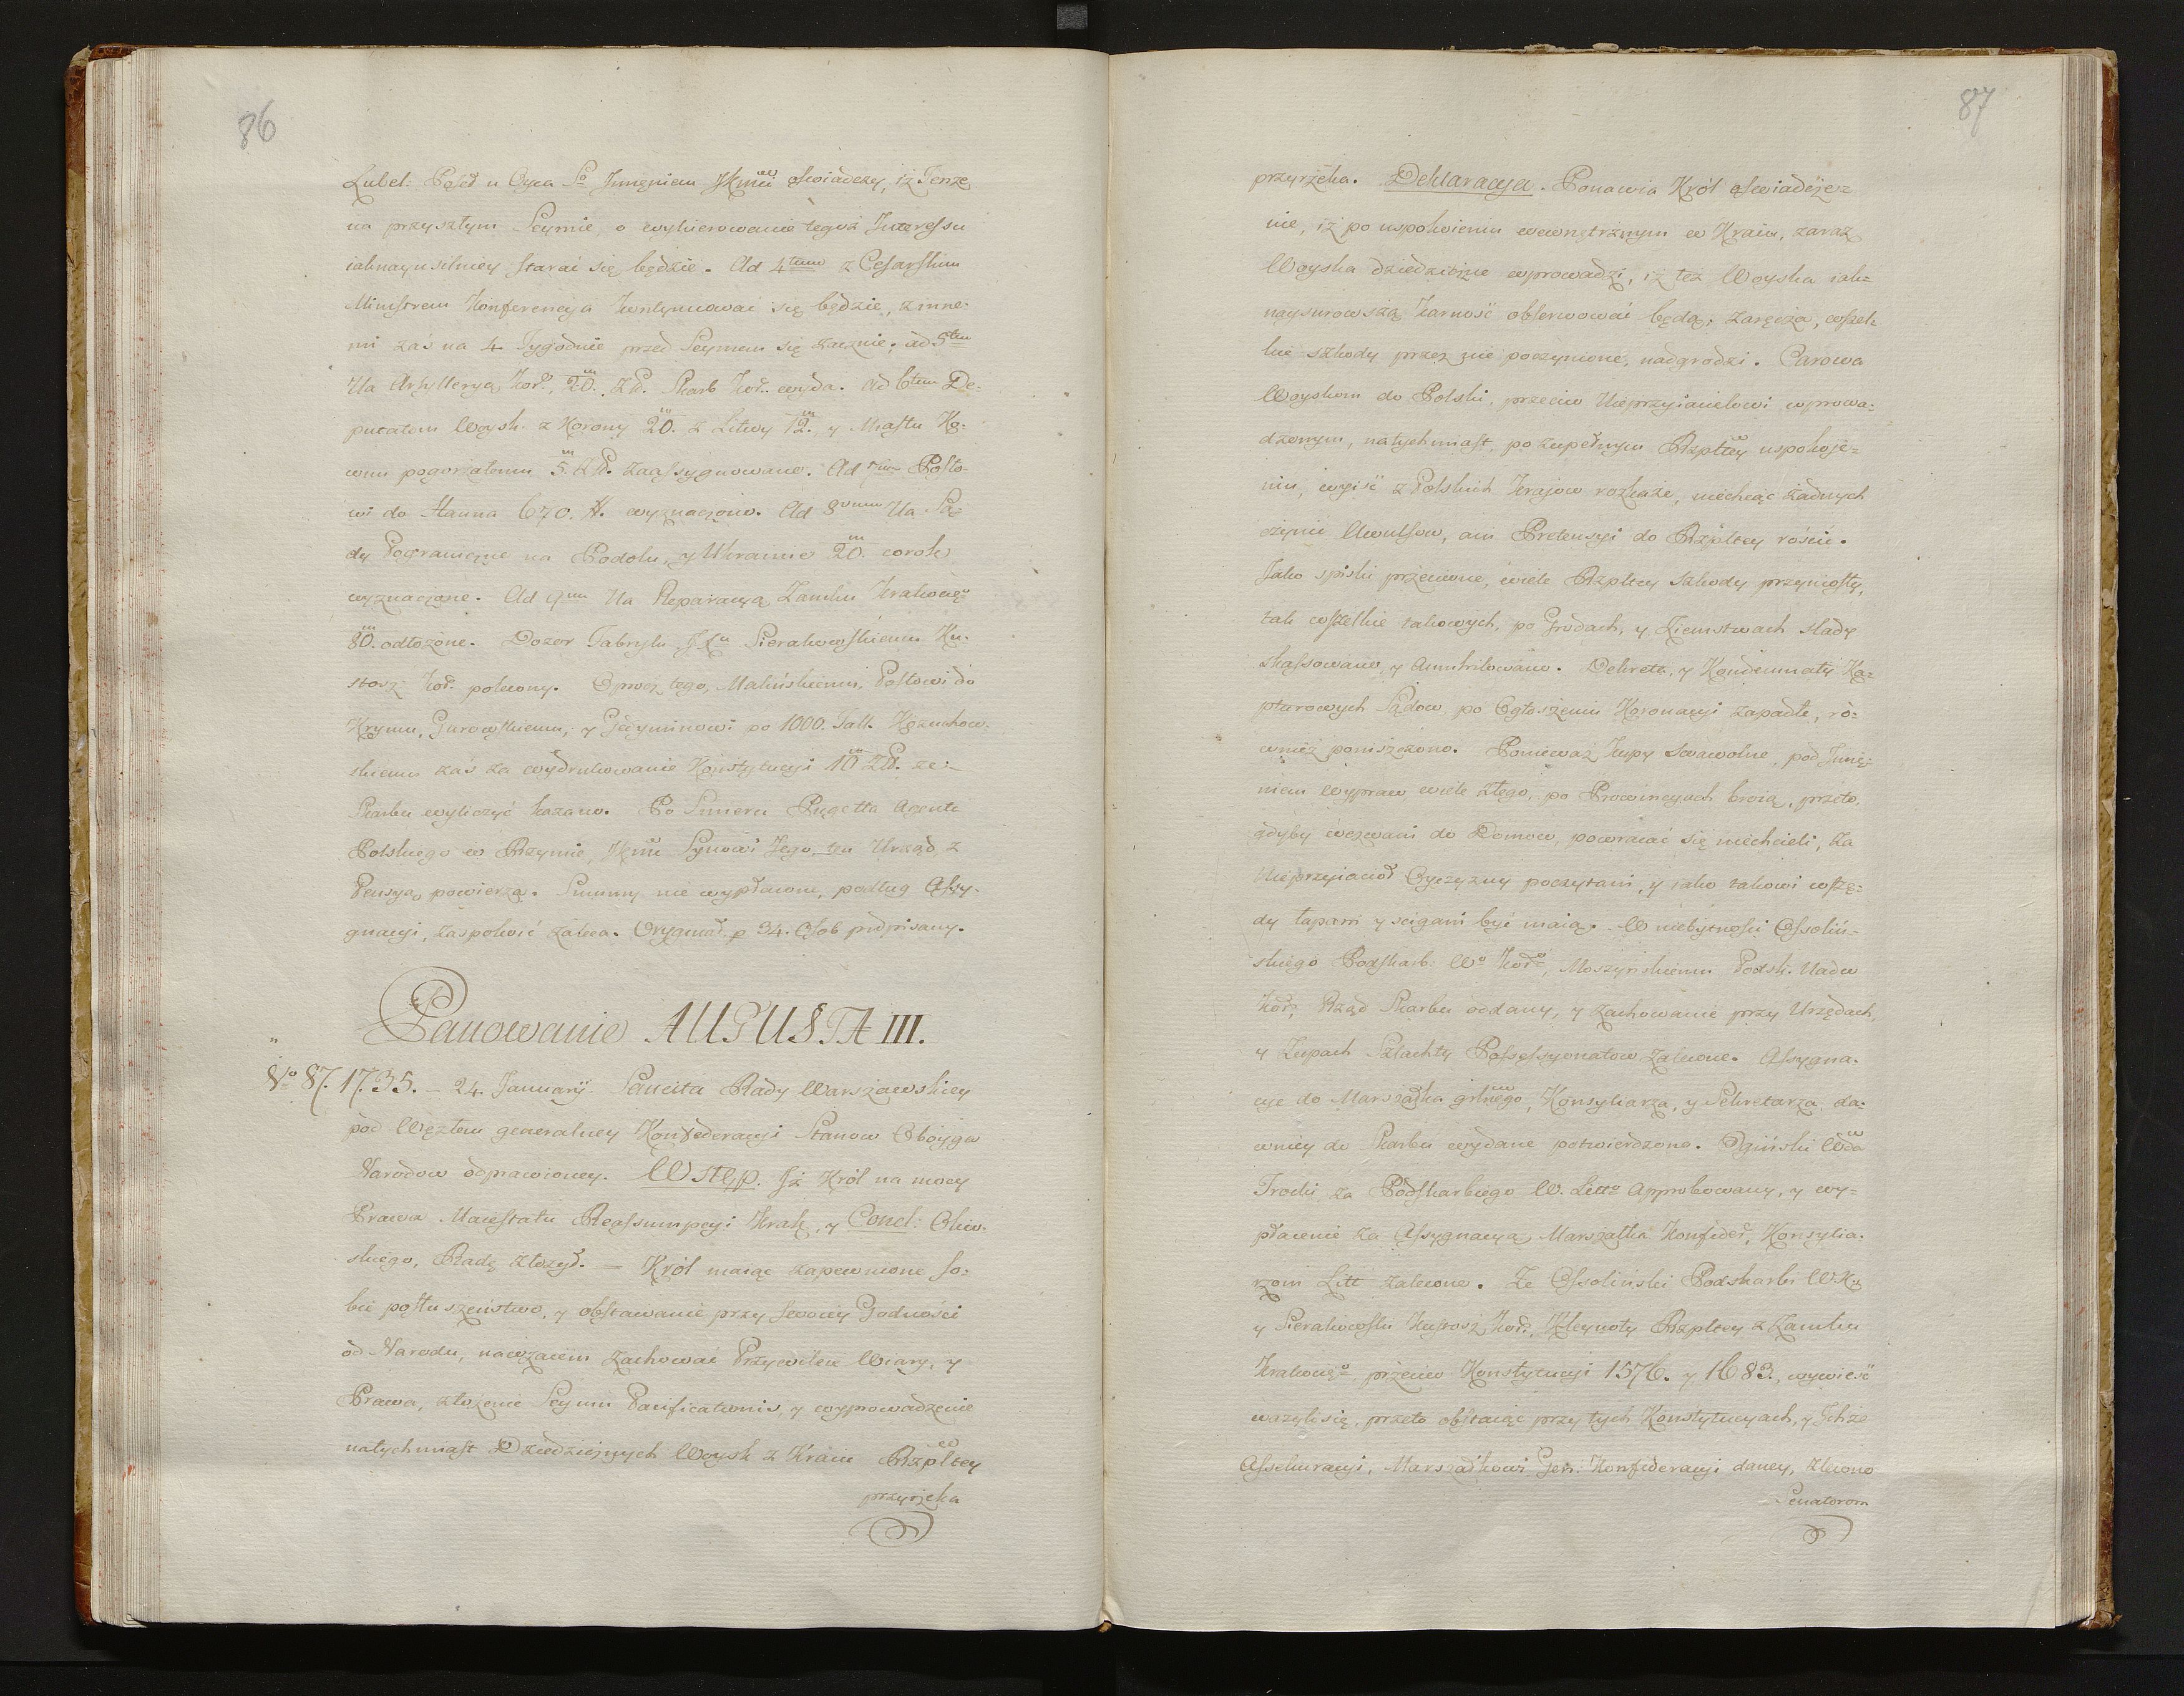 86
Lubel: Posel u Oyca So Imieniem JKmci oswiadczy, iż Tenze
na przyszłym Seymie, o wykierowanie tegoż Interessu
iaknayusilniey starać się będzie. Ad 4tum z Cesarskim
Ministrem Konferencya kontynuować się będzie, z inne-
mi zaś na 4. Tygodnie przed Seymem się zacznie, ad 5tum
Na Artylleryą Kor: 20.m Zł. Skarb Kor: wyda. Ad 6tum De-
putatom Woysk: z Korony 20.m z Litwy 12.m, y Miastu
pogorzałemu 5.m Zł. zaassygnowane. Ad 7um Posło-
wi do Hanna 670. # wyznaczono. Ad 8vum Na Są-
dy Pograniczne na Podolu, y Ukrainie 20.m corok
wyznaczone. Ad 9um Na Reparacyą Zamku Krakow:go
80.m odłożone. Dozor Fabryki Sierakowskiemu Ku-
stosz: Kor: polecony. Oprocz tego, Malińskiemu, Posłowi do
Krymu, Gurowskiemu, y Giedyminowi po 1000. Tall. Kozuchow-
skiemu zaś za wydrukowanie Konstytucyi 10m Zł. ze-
Skarbu wyliczyć kazano. Po Smierci Pugetta Agenta
Polskiego w Rzymie, JKmć Synowi Jego ten Urząd z
Pensyą powierza. Summy nie wypłacone, podług Assy-
gnacyi, zaspokoić zaleca. Oryginał p 34. Osob podpisany.
Panowanie AUGUSTA III.
No 87. 1735. – 24 Januarij. Sancita Rady Warszawskiey
pod Węzłem generalney Konfederacyi Stanow Oboyga
Narodow odprawioney. Wstęp. Iż Król na mocy
Prawa Maiestatu Reassumpcyi Krak, y Concl: Oliw-
skiego, Radę złożył. — Król maiąc zapewnione so-
bie posłuszeństwo, y obstawanie przy swoiey Godności
od Narodu, nawzaiem zachować Przywileie Wiary, y
Prawa, złożenie Seymu Pacificationis, y wyprowadzenie
natychmiast Dziedzicznych Woysk z Kraiu Rzpltey
przyrzeka
87
przyrzeka. Deklaracya. Ponawia Król oswiadcze-
nie, iż po uspokoieniu wewnętrznym w Kraiu, zaraz
Woyska dziedziczne wyprowadzi, iż też Woyska iak-
naysurowszą Karność obserwować będą, zaręcza, wszel-
kie szkody przez nie poczynione, nadgrodzi. Carowa
Woyskom do Polski, przeciw Nieprzyiacielowi wprowa-
dzonym, natychmiast, po zupełnym Rzpltey uspokoje-
niu, wyiść z Polskich Krajow rozkaże, niechcąc żadnych
czynić Awulsow, ani Pretensyi do Rzpltey rościć.
Jako spiski przeciwne, wiele Rzpltey szkody przyniosły,
tak wszelkie takowych, po Grodach, y Ziemstwach slady
skassowano, y Annihilowano. Dekreta, y Kondemnaty Ka-
pturowych Sądow, po Ogłoszeniu Koronacyi zapadłe, ró-
wnież poniszczono. Ponieważ Kupy Swawolne, pod Imie-
niem Wypraw, wiele złego, po Prowincyach broią, przeto
gdyby wezwani do Domow, powracać się niechcieli, za
Nieprzyiacioł Oyczyzny poczytani, y iako takowi wszę-
dy łapani y scigani być maią. W niebytności Ossoliń-
skiego Podskarb: Wo Koro, Moszyńskiemu Podsk. Nadw
Kor: Rząd Skarbu oddany, y zachowanie przy Urzędach,
y Żupach Szlachty Possessyonatow zalecone. Assygna-
cye do Marszałka grlnego, Konsyliarza, y Sekretarza, da-
wniey do Skarbu wydane potwierdzono. Ogiński Wda
Trocki za Podskarbiego W. Litt: Approbowany, y wy-
płacenie za Assygnacyą Marszałka Konfeder, Konsylia-
rzom Litt zalecone. Ze Ossoliński Podskarbi W K:
y Sierakowski Kustosz Kor:, Kleynoty Rzpltey z Zamku
Krakow:go przeciw Konstytucyi 1576. y 1683., wywieść
ważyli się, przeto obstaiąc przy tych Konstytucyach, y Ichże
Assekuracyi, Marszałkowi Gen: Konfederacyi daney, zlecono
Senatorom